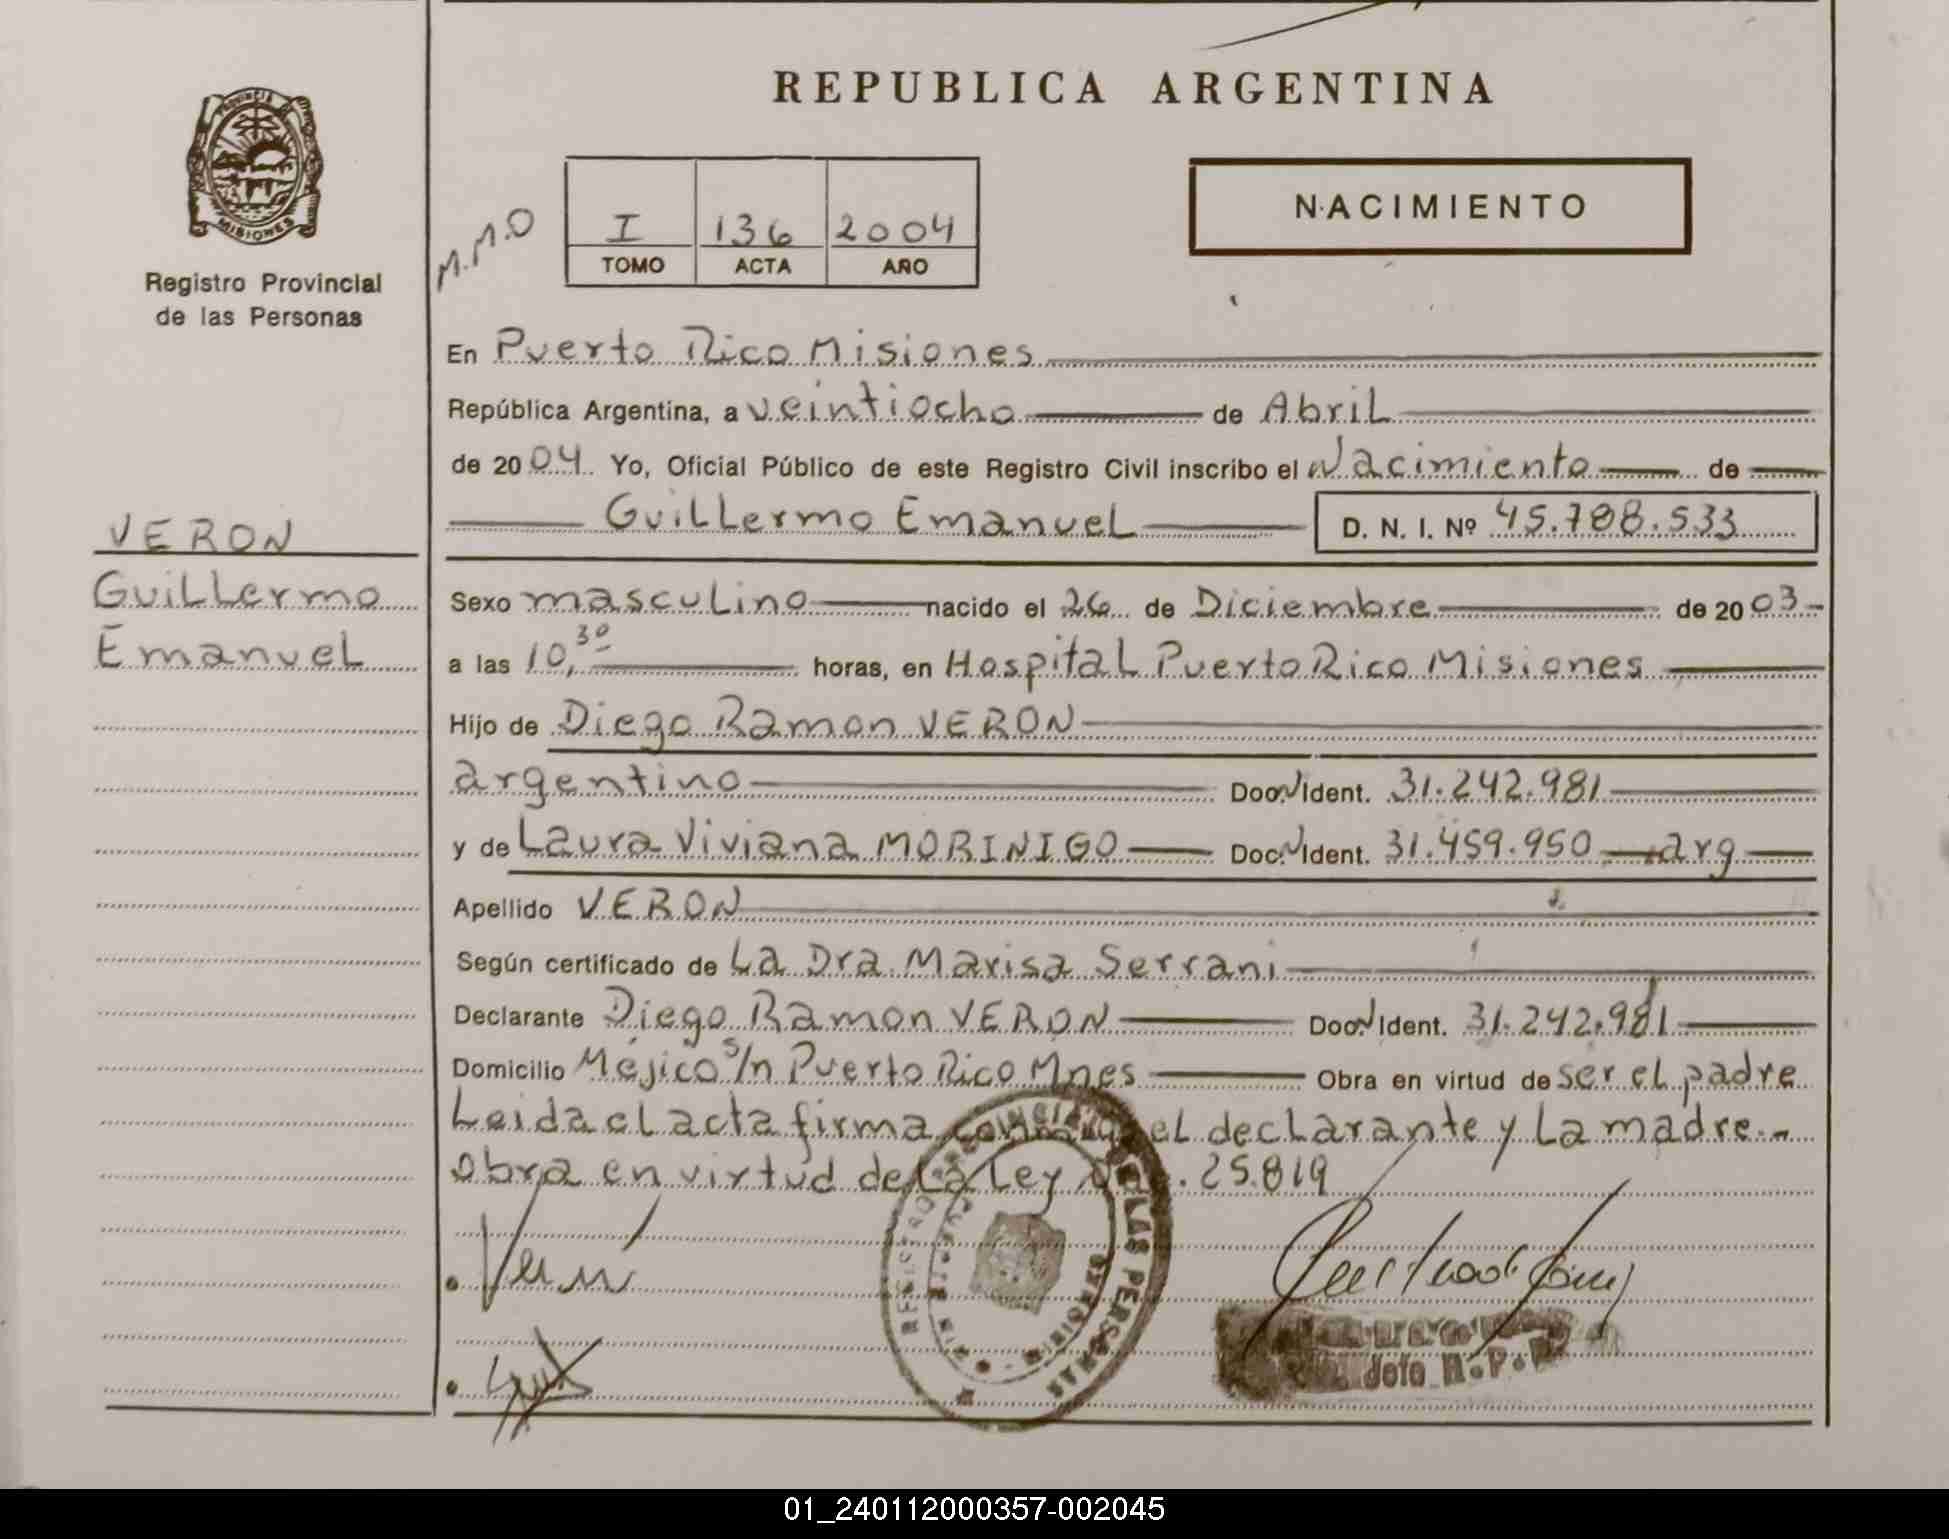 REPUBLICA ARGENTINA
PROVINCIA
MISIONES
Registro Provincial
de las Personas
M.M.O
I 136 2004
TOMO ACTA AÑO
NACIMIENTO
En Puerto Rico Misiones
República Argentina, a veintiocho de Abril
de 2004. Yo, Oficial Público de este Registro Civil inscribo el Nacimiento de
Guillermo Emanuel D. N. I. Nº 45.788.533
VERON
Guillermo
Emanuel
Sexo masculino nacido el 26 de Diciembre de 2003
a las 10,30 horas, en Hospital Puerto Rico Misiones
Hijo de Diego Ramon VERON
argentino Doc. Ident. 31.242.981
y de Laura Viviana MORINIGO Doc. Ident. 31.459.950 arg
Apellido VERON
Según certificado de La Dra Marisa Serrani
Declarante Diego Ramon VERON Doc. Ident. 31.242.981
Domicilio Méjico s/n Puerto Rico Mnes Obra en virtud de ser el padre
Leida el acta firma conmigo el declarante y La madre.-
Obra en virtud de La Ley 25.819
REGISTRO PROVINCIAL DE LAS PERSONAS
MISIONES
01_240112000357-002045